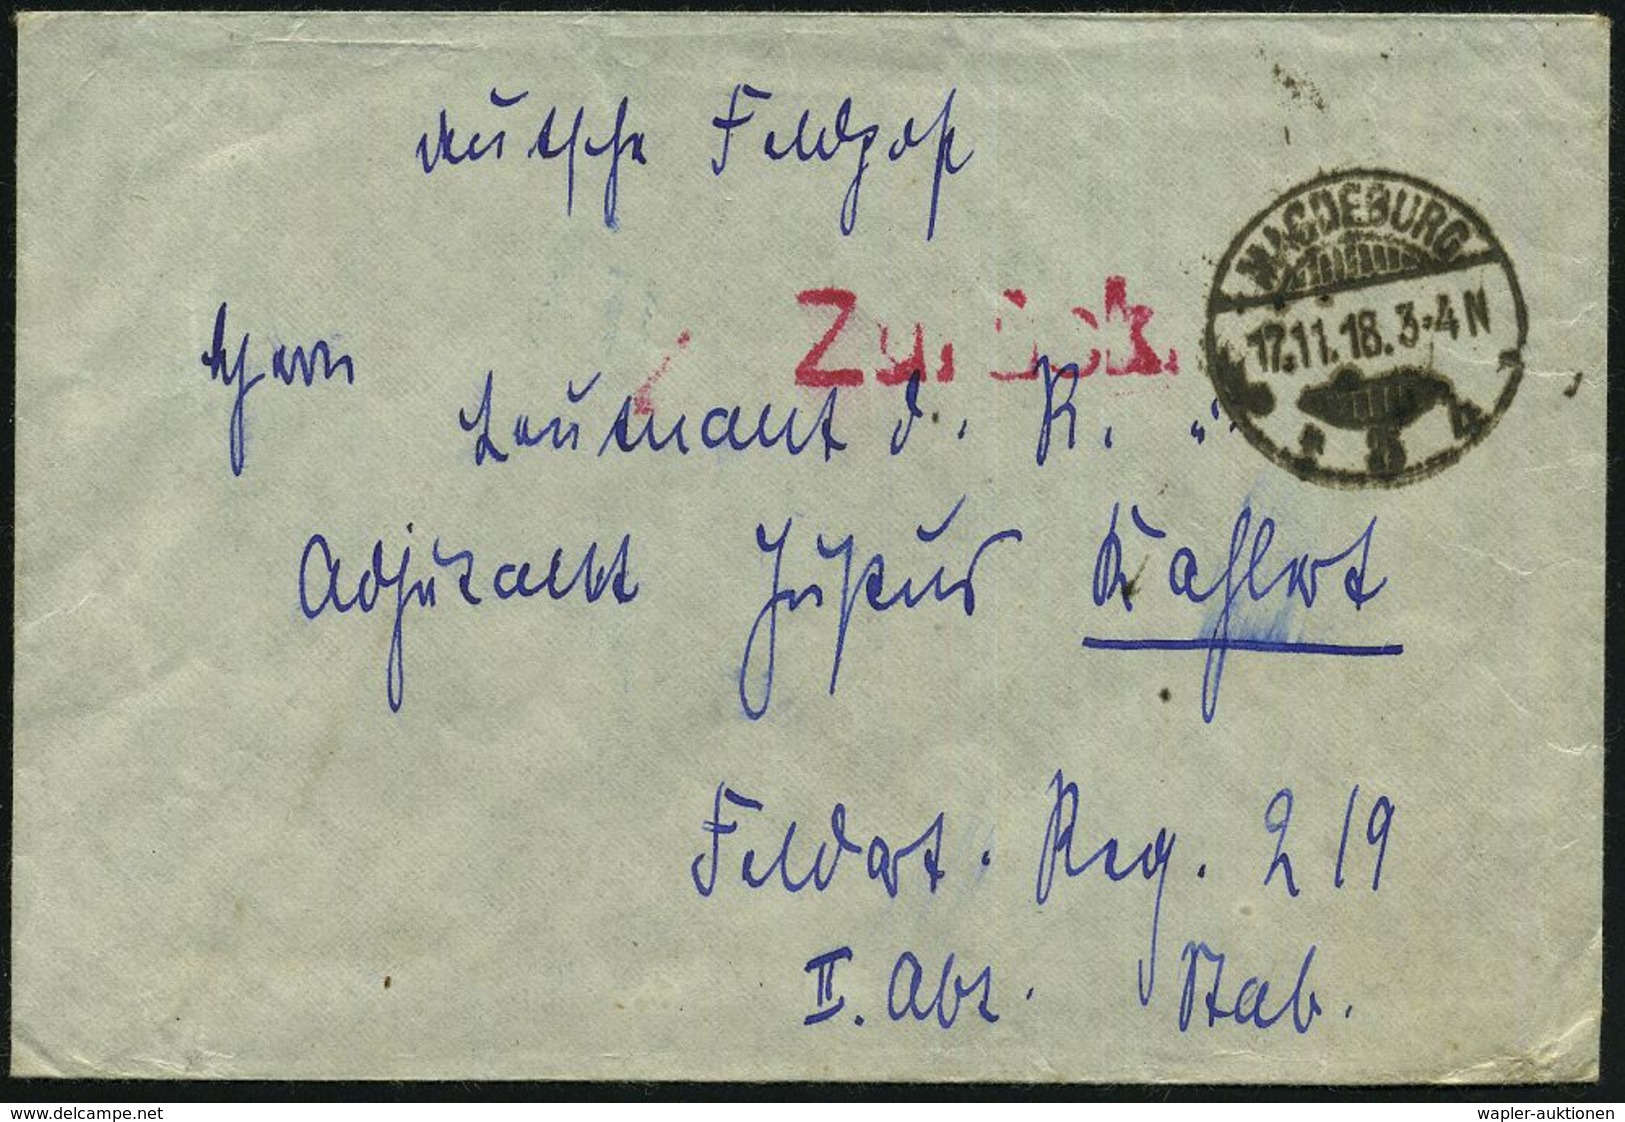 deutsche Feldpost
MAGDEBURG
17.11.18. 3-4 N
Zurück.
Herrn
Leutnant d. R. u.
Adjutant Justus Kahlert
Feldart. Reg. 219
II. Abt. Stab.
www.delcampe.net
wapler-auktionen